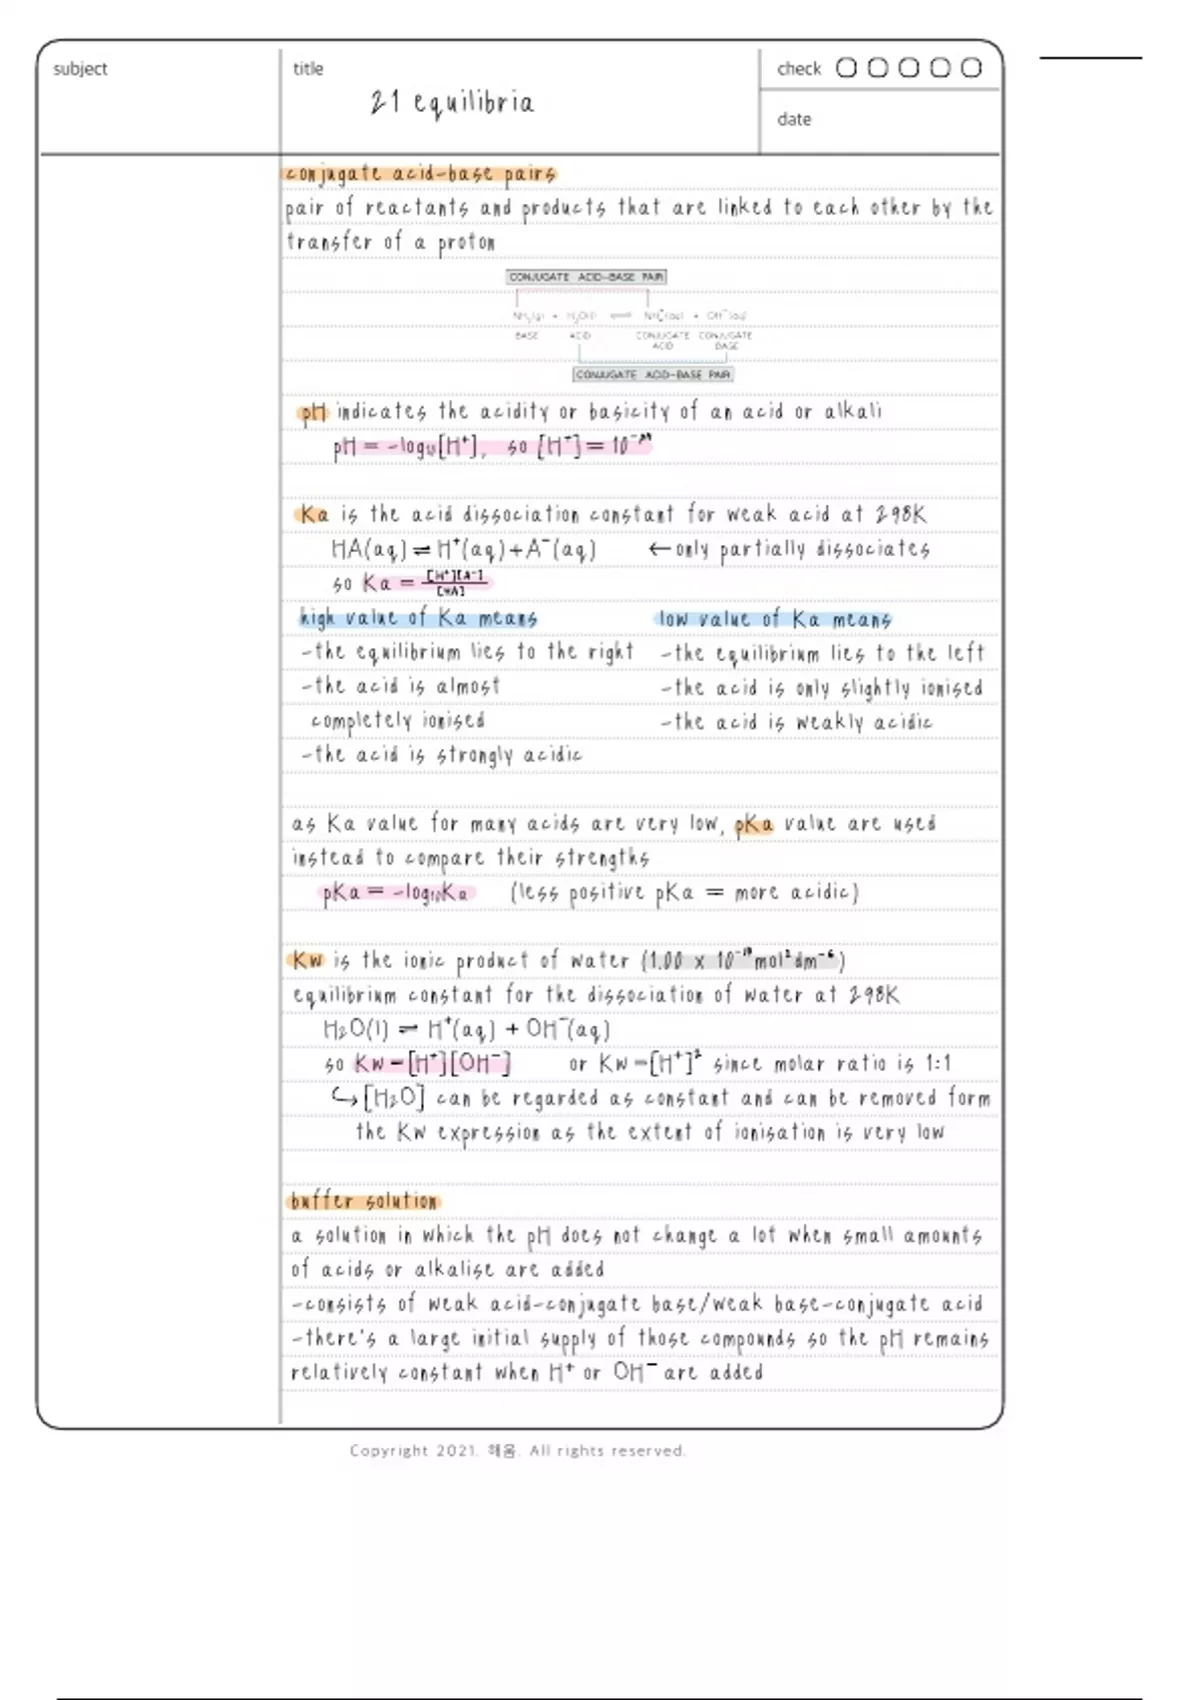 subject
title
21 equilibria
check
date
conjugate acid-base pairs
pair of reactants and products that are linked to each other by the
transfer of a proton
CONJUGATE ACID-BASE PAIR
NH₃(g) + H₂O(l) ⇌ NH₄⁺(aq) + OH⁻(aq)
BASE ACID CONJUGATE ACID CONJUGATE BASE
CONJUGATE ACID-BASE PAIR
pH indicates the acidity or basicity of an acid or alkali
pH = -log₁₀[H⁺], so [H⁺] = 10⁻ᵖᴴ
Ka is the acid dissociation constant for weak acid at 298K
HA(aq) ⇌ H⁺(aq)+A⁻(aq) ←only partially dissociates
so Ka = [H⁺][A⁻]/[HA]
high value of Ka means
-the equilibrium lies to the right
-the acid is almost
completely ionised
-the acid is strongly acidic
low value of Ka means
-the equilibrium lies to the left
-the acid is only slightly ionised
-the acid is weakly acidic
as Ka value for many acids are very low, pKa value are used
instead to compare their strengths
pKa = -log₁₀Ka (less positive pKa = more acidic)
Kw is the ionic product of water (1.00 x 10⁻¹⁴mol²dm⁻⁶)
equilibrium constant for the dissociation of water at 298K
H₂O(l) ⇌ H⁺(aq) + OH⁻(aq)
so Kw=[H⁺][OH⁻] or Kw=[H⁺]² since molar ratio is 1:1
↪[H₂O] can be regarded as constant and can be removed form
the Kw expression as the extent of ionisation is very low
buffer solution
a solution in which the pH does not change a lot when small amounts
of acids or alkalise are added
-consists of weak acid-conjugate base/weak base-conjugate acid
-there's a large initial supply of those compounds so the pH remains
relatively constant when H⁺ or OH⁻ are added
Copyright 2021. 해움. All rights reserved.